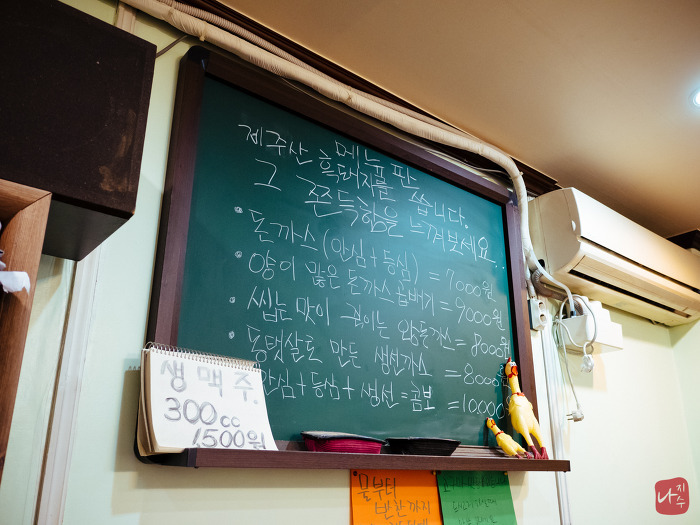 메뉴판
제주산 흑돼지를 씁니다.
그 쫀득함을 느껴보세요..
• 돈까스 (안심+등심) = 7000원
• 양이 많은 돈까스곱배기 = 9000원
• 씹는맛이 있는 왕돈까스 = 8000원
• 동태살로 만든 생선까스 = 8000원
안심+등심+생선=콤보 = 10,000
생맥주.
300cc
1,500원
물부터
반찬까지
나지수